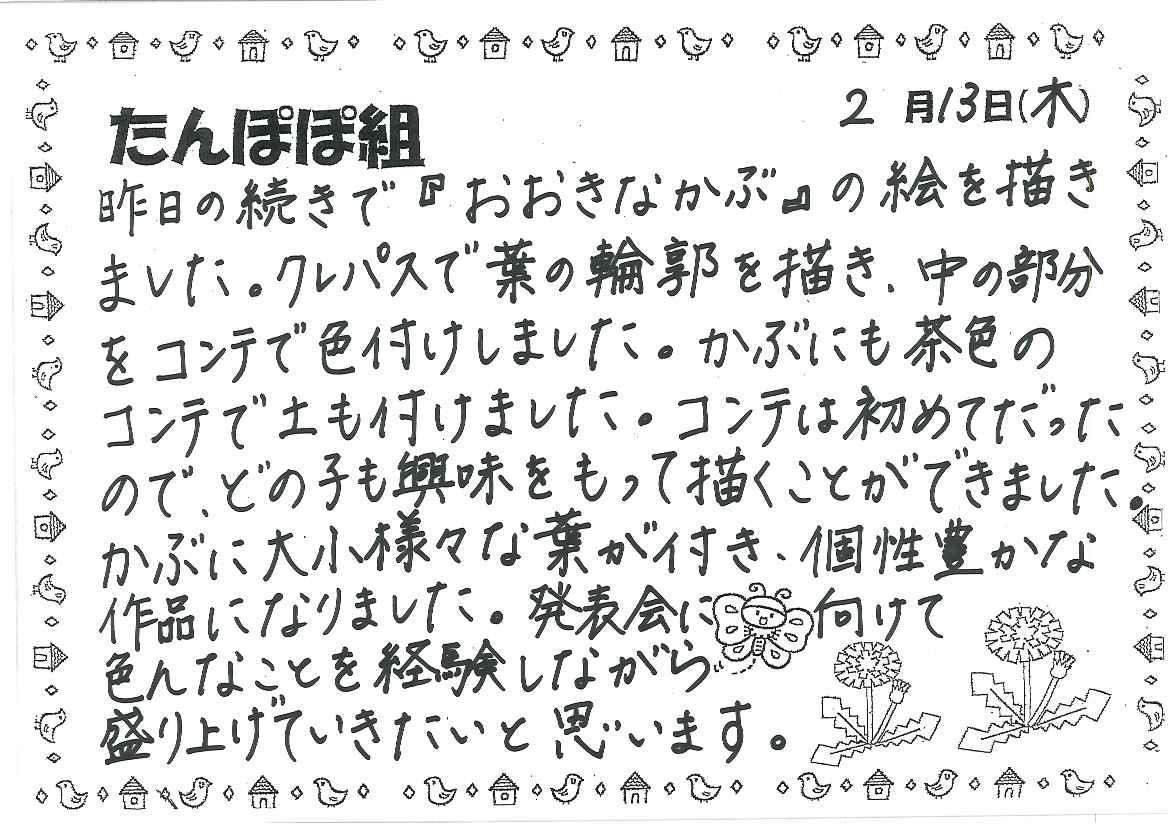 2月13日(木)
たんぽぽ組
昨日の続きで『おおきなかぶ』の絵を描き
ました。クレパスで葉の輪郭を描き、中の部分
をコンテで色付けしました。かぶにも茶色の
コンテで土も付けました。コンテは初めてだった
ので、どの子も興味をもって描くことができました。
かぶに大小様々な葉が付き、個性豊かな
作品になりました。発表会に向けて
色んなことを経験しながら
盛り上げていきたいと思います。